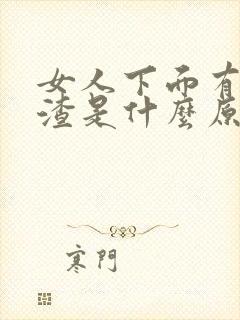 女人下面有
渣是什麼原
寒門